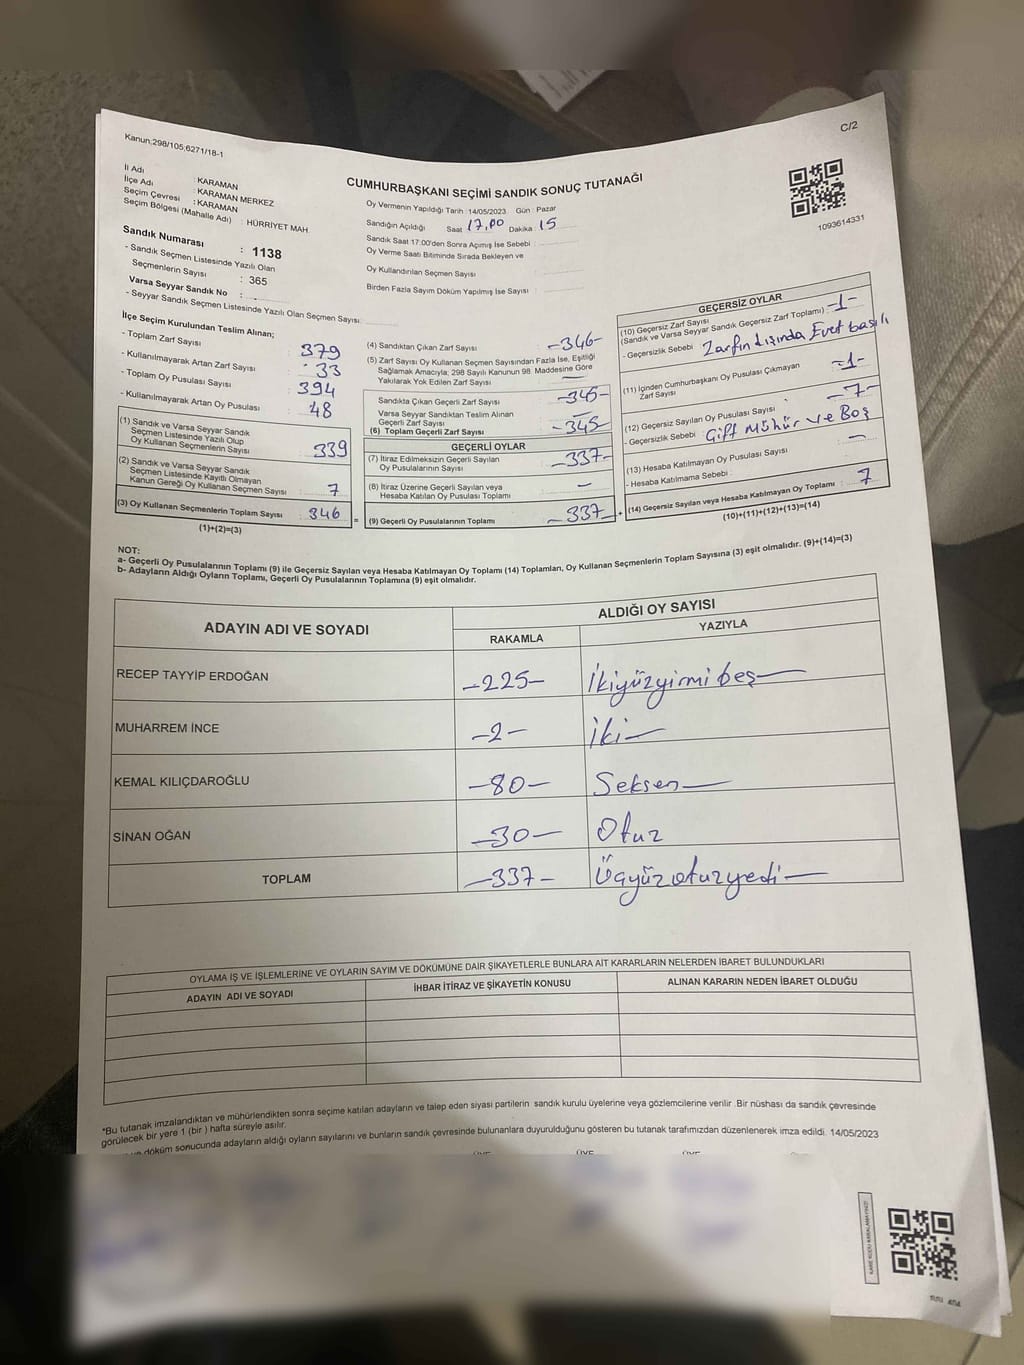 Kanun;298/105;6271/18-1
C/2
İl Adı : KARAMAN
İlçe Adı : KARAMAN MERKEZ
Seçim Çevresi : KARAMAN
Seçim Bölgesi (Mahalle Adı) : HÜRRİYET MAH.
CUMHURBAŞKANI SEÇİMİ SANDIK SONUÇ TUTANAĞI
Oy Vermenin Yapıldığı Tarih :14/05/2023 Gün : Pazar
Sandığın Açıldığı Saat 17,00 Dakika : 15
Sandık Saat 17:00'den Sonra Açımış İse Sebebi :
Oy Verme Saati Bitiminde Sırada Bekleyen ve
Oy Kullandırılan Seçmen Sayısı :
Birden Fazla Sayım Döküm Yapılmış İse Sayısı :
1093614331
Sandık Numarası : 1138
- Sandık Seçmen Listesinde Yazılı Olan
Seçmenlerin Sayısı : 365
Varsa Seyyar Sandık No :
- Seyyar Sandık Seçmen Listesinde Yazılı Olan Seçmen Sayısı:
İlçe Seçim Kurulundan Teslim Alınan;
- Toplam Zarf Sayısı : 379
- Kullanılmayarak Artan Zarf Sayısı : 33
- Toplam Oy Pusulası Sayısı : 394
- Kullanılmayarak Artan Oy Pusulası : 48
(1) Sandık ve Varsa Seyyar Sandık
Seçmen Listesinde Yazılı Olup
Oy Kullanan Seçmenlerin Sayısı : 339
(2) Sandık ve Varsa Seyyar Sandık
Seçmen Listesinde Kayıtlı Olmayan
Kanun Gereği Oy Kullanan Seçmen Sayısı : 7
(3) Oy Kullanan Seçmenlerin Toplam Sayısı : 346
(1)+(2)=(3)
(4) Sandıktan Çıkan Zarf Sayısı : -346-
(5) Zarf Sayısı Oy Kullanan Seçmen Sayısından Fazla İse, Eşitliği
Sağlamak Amacıyla; 298 Sayılı Kanunun 98. Maddesine Göre
Yakılarak Yok Edilen Zarf Sayısı : —
Sandıkta Çıkan Geçerli Zarf Sayısı : -345-
Varsa Seyyar Sandıktan Teslim Alınan
Geçerli Zarf Sayısı : —
(6) Toplam Geçerli Zarf Sayısı : -345-
GEÇERLİ OYLAR
(7) İtiraz Edilmeksizin Geçerli Sayılan
Oy Pusulalarının Sayısı : -337-
(8) İtiraz Üzerine Geçerli Sayılan veya
Hesaba Katılan Oy Pusulası Toplamı : —
= (9) Geçerli Oy Pusulalarının Toplamı : -337-
GEÇERSİZ OYLAR
(10) Geçersiz Zarf Sayısı
(Sandık ve Varsa Seyyar Sandık Geçersiz Zarf Toplamı) : -1-
- Geçersizlik Sebebi : Zarfın dışında Evet basılı
(11) İçinden Cumhurbaşkanı Oy Pusulası Çıkmayan
Zarf Sayısı : -1-
(12) Geçersiz Sayılan Oy Pusulası Sayısı : -7-
- Geçersizlik Sebebi : Çift Mühür ve Boş
(13) Hesaba Katılmayan Oy Pusulası Sayısı : —
- Hesaba Katılmama Sebebi :
+ (14) Geçersiz Sayılan veya Hesaba Katılmayan Oy Toplamı : 7
(10)+(11)+(12)+(13)=(14)
NOT:
a- Geçerli Oy Pusulalarının Toplamı (9) ile Geçersiz Sayılan veya Hesaba Katılmayan Oy Toplamı (14) Toplamları, Oy Kullanan Seçmenlerin Toplam Sayısına (3) eşit olmalıdır. (9)+(14)=(3)
b- Adayların Aldığı Oyların Toplamı, Geçerli Oy Pusulalarının Toplamına (9) eşit olmalıdır.
ADAYIN ADI VE SOYADI
ALDIĞI OY SAYISI
RAKAMLA YAZIYLA
RECEP TAYYİP ERDOĞAN -225- İkiyüzyirmi beş
MUHARREM İNCE -2- İki
KEMAL KILIÇDAROĞLU -80- Seksen
SİNAN OĞAN -30- Otuz
TOPLAM -337- Üçyüzotuzyedi
OYLAMA İŞ VE İŞLEMLERİNE VE OYLARIN SAYIM VE DÖKÜMÜNE DAİR ŞİKAYETLERLE BUNLARA AİT KARARLARIN NELERDEN İBARET BULUNDUKLARI
ADAYIN ADI VE SOYADI İHBAR İTİRAZ VE ŞİKAYETİN KONUSU ALINAN KARARIN NEDEN İBARET OLDUĞU
*Bu tutanak imzalandıktan ve mühürlendikten sonra seçime katılan adayların ve talep eden siyasi partilerin sandık kurulu üyelerine veya gözlemcilerine verilir .Bir nüshası da sandık çevresinde
görülecek bir yere 1 (bir ) hafta süreyle asılır.
döküm sonucunda adayların aldığı oyların sayılarını ve bunların sandık çevresinde bulunanlara duyurulduğunu gösteren bu tutanak tarafımızdan düzenlenerek imza edildi. 14/05/2023